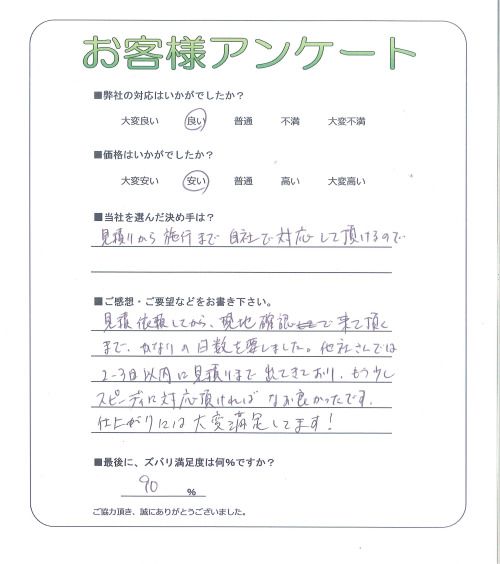 お客様アンケート
■弊社の対応はいかがでしたか？
大変良い 良い 普通 不満 大変不満
■価格はいかがでしたか？
大変安い 安い 普通 高い 大変高い
■当社を選んだ決め手は？
見積りから施行まで自社で対応して頂けるので
■ご感想・ご要望などをお書き下さい。
見積依頼してから、現地確認で来て頂く
まで、かなりの日数を要しました。他社さんでは
2-3日以内に見積りまで出てきており、もう少し
スピーディに対応頂ければなお良かったです。
仕上がりには大変満足してます！
■最後に、ズバリ満足度は何%ですか？
90 %
ご協力頂き、誠にありがとうございました。